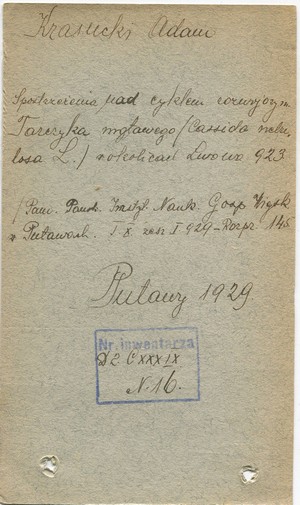 Krasucki Adam
Spostrzeżenia nad cyklem rozwojowym
Tarczyka mgławego / (Cassida nebu-
losa L.) / w okolicach Lwowa 923
/ Pam. Państ. Instyt. Nauk. Gosp. Wiejsk
w Puławach. T. X zesz I 929 - Rozpr 145
Puławy 1929
Nr. inwentarza
D2 CXXXIX
N. 16.